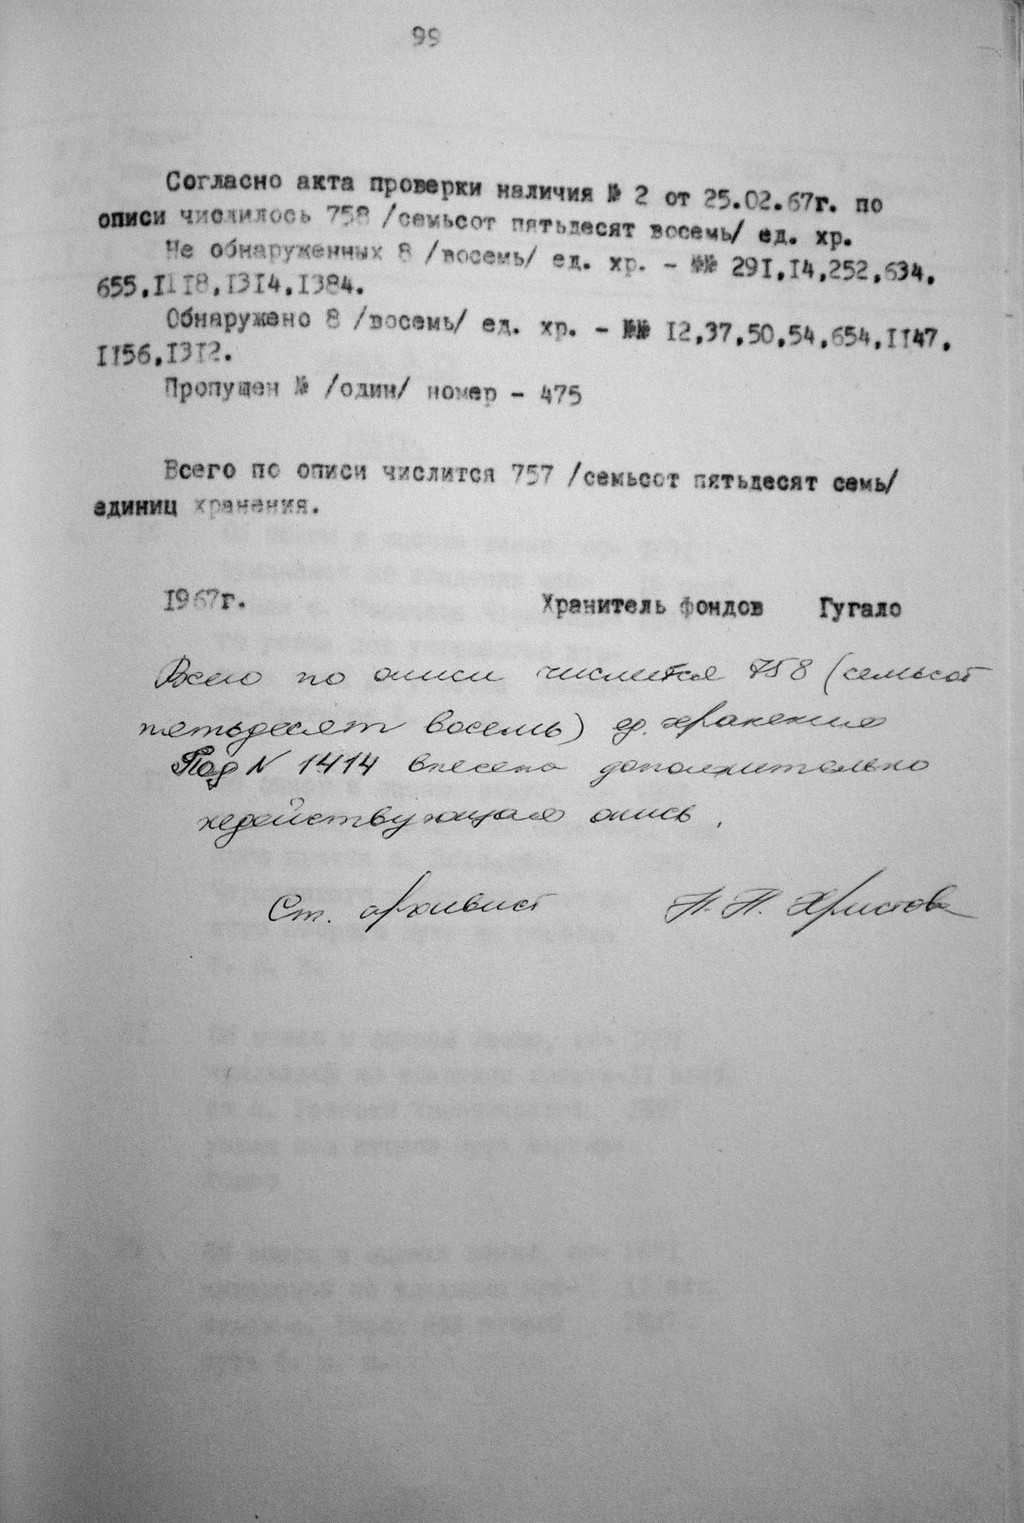 99
Согласно акта проверки наличия № 2 от 25.02.67г. по
описи числилось 758 /семьсот пятьдесят восемь/ ед. хр.
Не обнаруженных 8 /восемь/ ед. хр. - №№ 291,14,252,634,
655,1118,1314,1384.
Обнаружено 8 /восемь/ ед. хр. - №№ 12,37,50,54,654,1147,
1156,1312.
Пропущен № /один/ номер - 475
Всего по описи числится 757 /семьсот пятьдесят семь/
единиц хранения.
1967г. Хранитель фондов Гугало
Всего по описи числится 758 (семьсот
пятьдесят восемь) ед. хранения
Под N 1414 внесена дополнительно
недействующая опись.
Ст. архивист Н. П. Христова